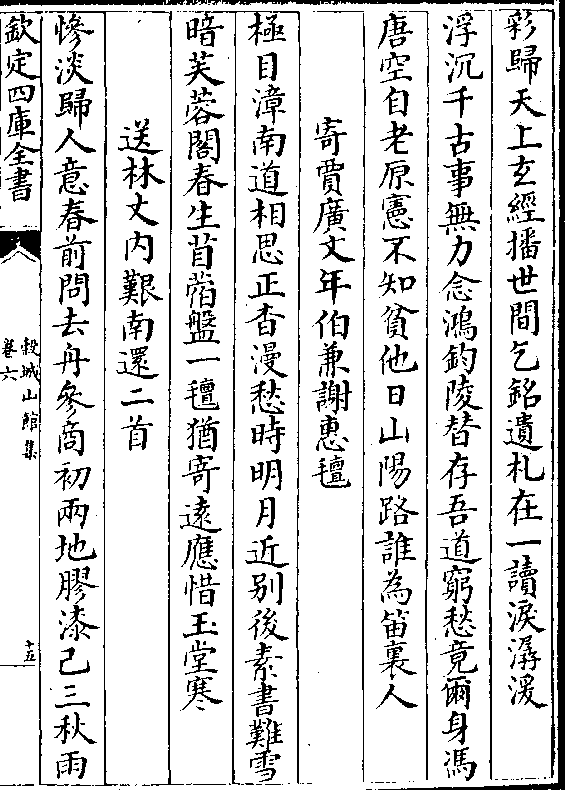 彩歸天上玄經播世間乞銘遺札在一讀淚潺湲
浮沉千古事無力念鴻鈞陵替存吾道窮愁竟爾身馮
唐空自老原憲不知貧他日山陽路誰為笛裏人
寄賈廣文年伯兼謝惠氊
極目漳南道相思正杳漫愁時明月近别後素書難雪
暗芙蓉閣春生苜蓿盤一氊猶寄遠應惜玉堂寒
送林丈内艱南還二首
慘淡歸人意春前問去舟參商初兩地膠漆已三秋雨
欽定四庫全書
穀城山館集
卷六
十五